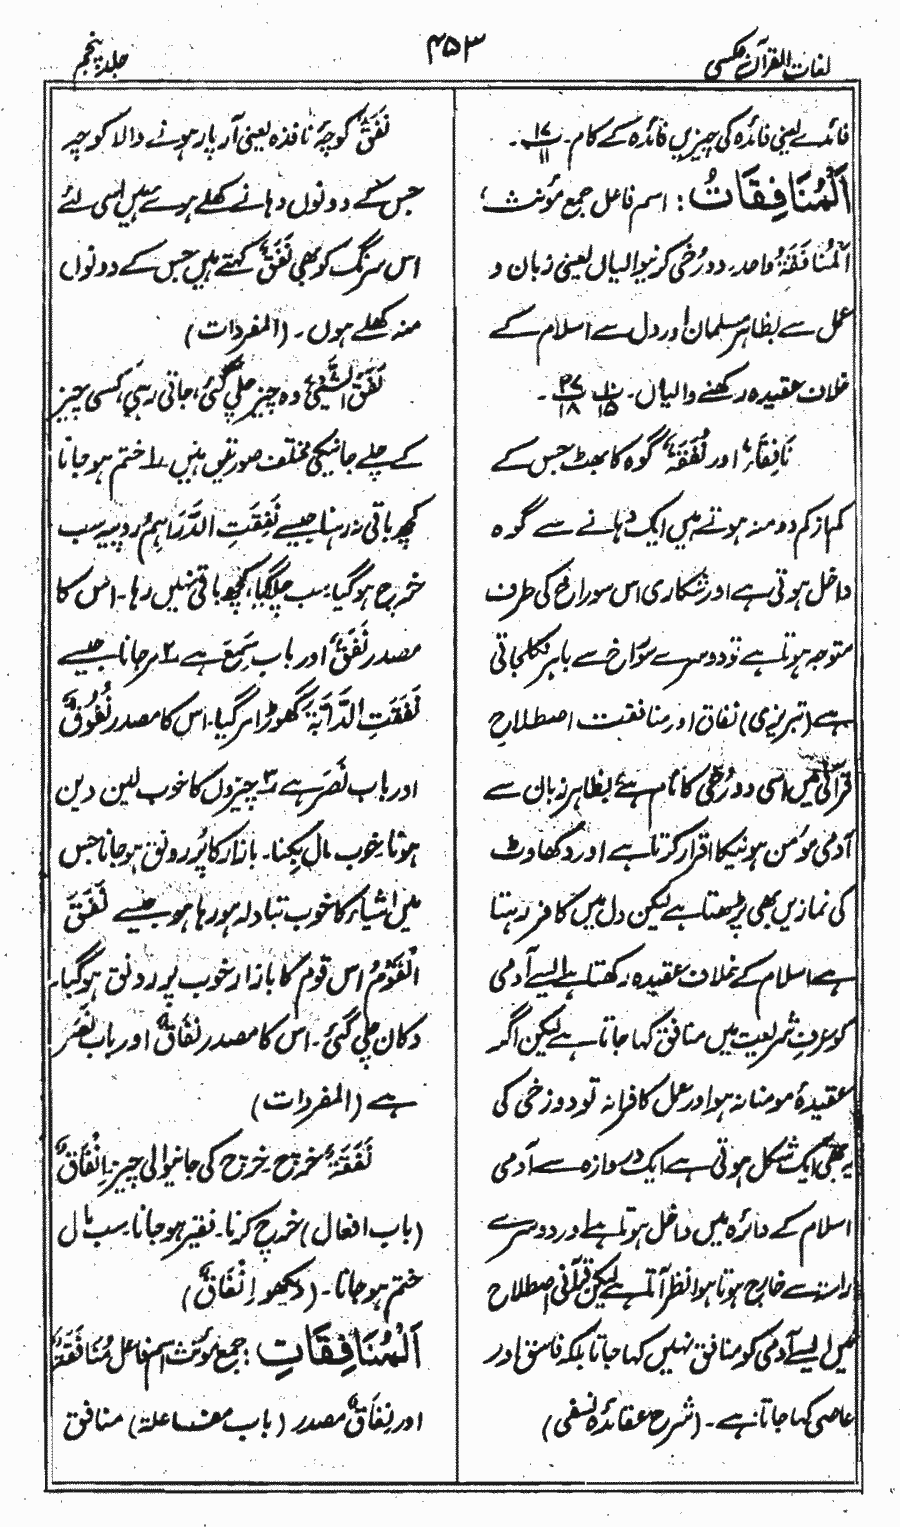 لغات القرآن عکسی
۴۵۳
جلد پنجم
فائدے یعنی فائدہ کی چیزیں فائدہ کے کام۔ پ ۱۷/۱۱۔
اَلْمُنَافِقَاتُ: اسم فاعل جمع مؤنث،
اَلْمُنَافِقَۃُ واحد۔ دو رُخی کرنیوالیاں یعنی زبان و
عمل سے بظاہر مسلمان اور دل سے اسلام کے
خلاف عقیدہ رکھنے والیاں۔ پ ۱۵ پ ۲۷/۱۸۔
نَافِقَاءُ اور نُفَقَۃٌ گوہ کا بھٹ جس کے
کم از کم دو منہ ہوتے ہیں ایک دہانے سے گوہ
داخل ہوتی ہے اور شکاری اس سوراخ کی طرف
متوجہ ہوتا ہے تو دوسرے سوراخ سے باہر نکلجاتی
ہے (تبریزی) نفاق اور منافقت اصطلاحِ
قرآنی میں اسی دو رُخی کا نام ہے، بظاہر زبان سے
آدمی مؤمن ہونیکا اقرار کرتا ہے اور دکھاوٹ
کی نمازیں بھی پڑھتا ہے لیکن دل میں کافر رہتا
ہے اسلام کے خلاف عقیدہ رکھتا ہے ایسے آدمی
کو عرفِ شریعت میں منافق کہا جاتا ہے لیکن اگر
عقیدۂ مومنانہ ہو اور عمل کافرانہ تو دوزخی کی
یہ بھی ایک شکل ہوتی ہے ایک دروازہ سے آدمی
اسلام کے دائرہ میں داخل ہوتا ہے اور دوسرے
راستے سے خارج ہوتا ہوا نظر آتا ہے لیکن قرآنی اصطلاح
میں ایسے آدمی کو منافق نہیں کہا جاتا بلکہ فاسق اور
عاصی کہا جاتا ہے۔ (شرح عقائد نسفی)
نَفَقٌ کوچۂ نافذہ یعنی آر پار ہونے والا کوچہ
جس کے دونوں دہانے کھلے ہوئے ہیں اسی لئے
اس سرنگ کو بھی نَفَقٌ کہتے ہیں جس کے دونوں
منہ کھلے ہوں۔ (المفردات)
نَفَقَ الشَّیْءُ وہ چیز چلی گئی، جاتی رہی، کسی چیز
کے چلے جانیکی مختلف صورتیں ہیں ۱؎ ختم ہو جانا
کچھ باقی نہ رہنا جیسے نَفِقَتِ الدَّرَاہِمُ روپیہ سب
خرچ ہو گیا، سب چلا گیا، کچھ باقی نہیں رہا۔ اس کا
مصدر نَفَقٌ اور باب سَمِعَ ہے ۲؎ مر جانا جیسے
نَفَقَتِ الدَّابَّۃُ گھوڑا مر گیا۔ اس کا مصدر نُفُوْقٌ
اور باب نَصَرَ ہے ۳؎ چیزوں کا خوب لین دین
ہوتا خوب مال بکنا۔ بازار کا پُر رونق ہو جانا جس
میں اشیاء کا خوب تبادلہ ہو رہا ہو جیسے نَفَقَ
الْقَوْمُ اس قوم کا بازار خوب پر رونق ہو گیا۔
دکان چلی گئی۔ اس کا مصدر نَفَاقٌ اور باب نَصَرَ
ہے (المفردات)
نَفَقَۃٌ خرچ۔ خرچ کی جانیوالی چیز۔ اِنْفَاقٌ
(باب افعال) خرچ کرنا۔ فقیر ہو جانا۔ سب مال
ختم ہو جانا۔ (دیکھو اِنْفَاقٌ)
اَلْمُنَافِقَاتِ: جمع مؤنث اسم فاعل مُنَافَقَۃٌ
اور نِفَاقٌ مصدر (باب مفاعلۃ) منافق